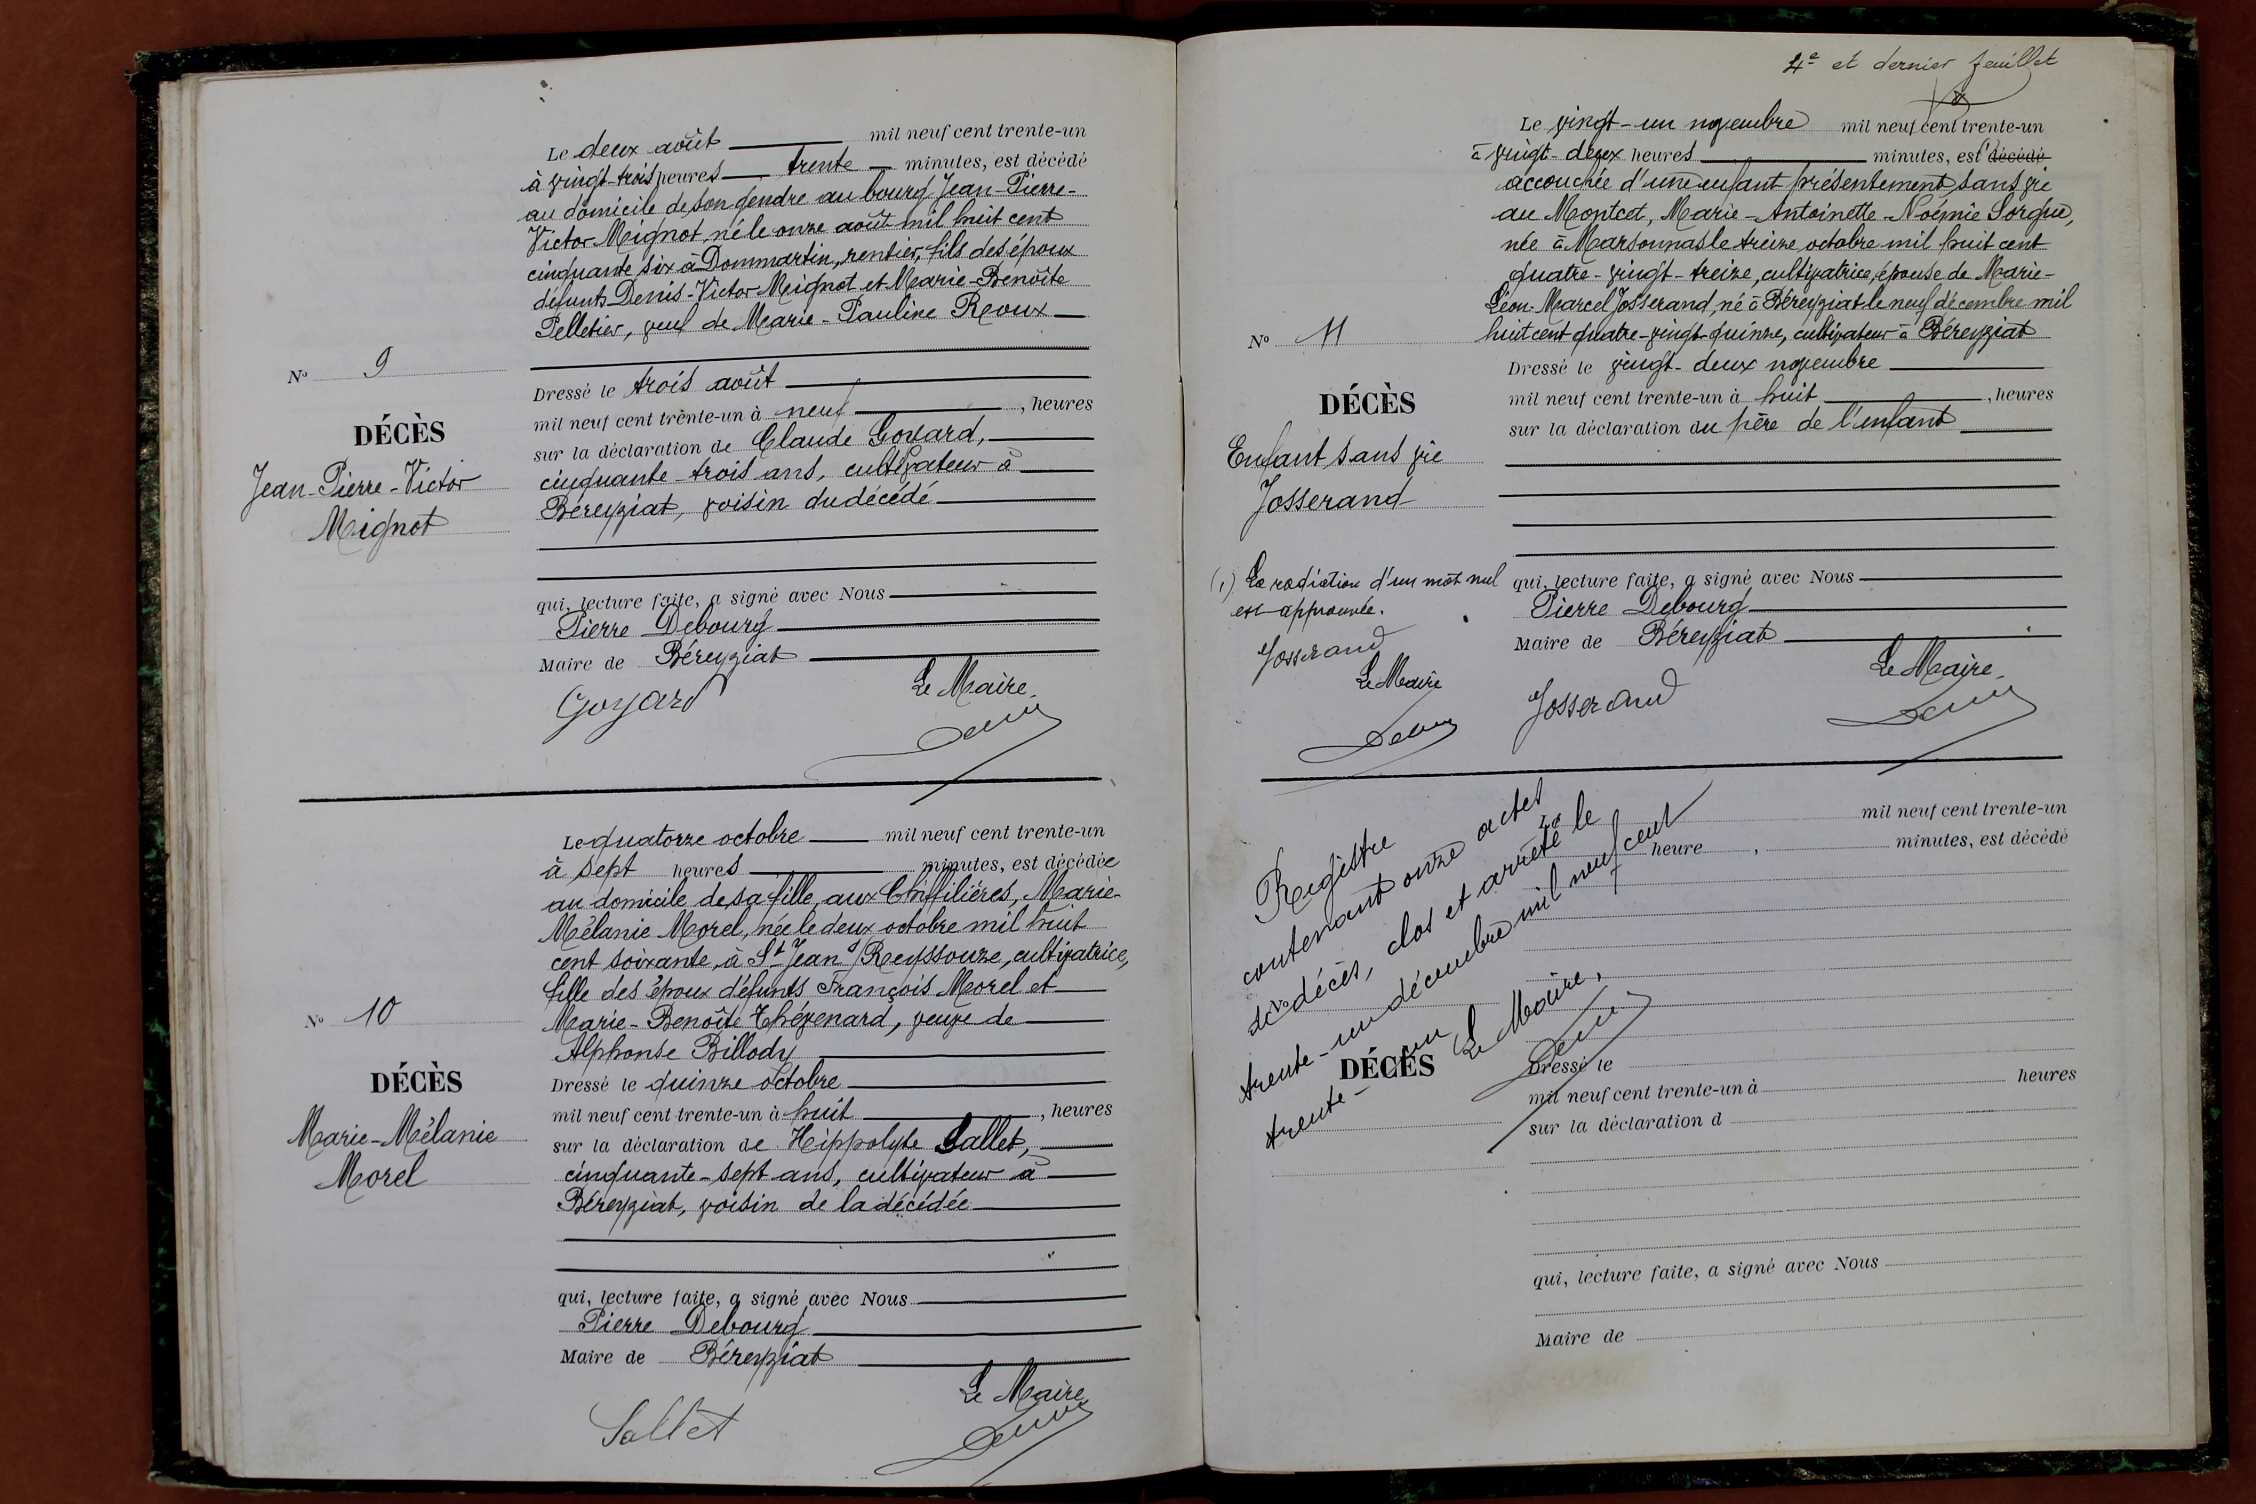 Le deux août mil neuf cent trente-un
à vingt-trois heures trente minutes, est décédé
au domicile de son gendre au bourg Jean-Pierre-
Victor Mignot, né le onze août mil huit cent
cinquante six à Dommartin, rentier, fils des époux
défunts Denis-Victor Mignot et Marie-Benoîte
Pelletier, veuf de Marie-Pauline Reoux
N° 9
DÉCÈS
Jean-Pierre-Victor
Mignot
Dressé le trois août
mil neuf cent trente-un à neuf, heures
sur la déclaration de Claude Goyard,
cinquante-trois ans, cultivateur à
Béreyziat, voisin du décédé
qui, lecture faite, a signé avec Nous
Pierre Debourg
Maire de Béreyziat
Le Maire.
Goyard
Le quatorze octobre mil neuf cent trente-un
à sept heures minutes, est décédée
au domicile de sa fille, aux Chiffilières, Marie-
Mélanie Morel, née le deux octobre mil huit
cent soixante, à St Jean s/ Reyssouze, cultivatrice,
fille des époux défunts François Morel et
Marie-Benoîte Thévenard, veuve de
Alphonse Billody
N° 10
DÉCÈS
Marie-Mélanie
Morel
Dressé le quinze octobre
mil neuf cent trente-un à huit, heures
sur la déclaration de Hippolyte Sallet,
cinquante-sept ans, cultivateur à
Béreyziat, voisin de la décédée
qui, lecture faite, a signé avec Nous
Pierre Debourg
Maire de Béreyziat
Le Maire
Sallet
4e et dernier feuillet
Le vingt-un novembre mil neuf cent trente-un
à vingt-deux heures minutes, est décédé
accouchée d'une enfant présentement sans vie
au Montcet, Marie-Antoinette-Noémie Sorgue,
née à Marsonnas le treize octobre mil huit cent
quatre-vingt-treize, cultivatrice, épouse de Marie-
Léon-Marcel Josserand, né à Béreyziat le neuf décembre mil
huit cent quatre-vingt-quinze, cultivateur à Béreyziat
N° 11
DÉCÈS
Enfant sans vie
Josserand
Dressé le vingt-deux novembre
mil neuf cent trente-un à huit, heures
sur la déclaration du père de l'enfant
(1) La radiation d'un mot nul
est approuvée.
Josserand
Le Maire
qui, lecture faite, a signé avec Nous
Pierre Debourg
Maire de Béreyziat
Le Maire.
Josserand
Registre
contenant onze actes
de décès, clos et arrêté le
trente-un décembre mil neuf cent
trente-un
Le Maire,
mil neuf cent trente-un
heure, minutes, est décédé
DÉCÈS
Dressé le
mil neuf cent trente-un à heures
sur la déclaration d
qui, lecture faite, a signé avec Nous
Maire de